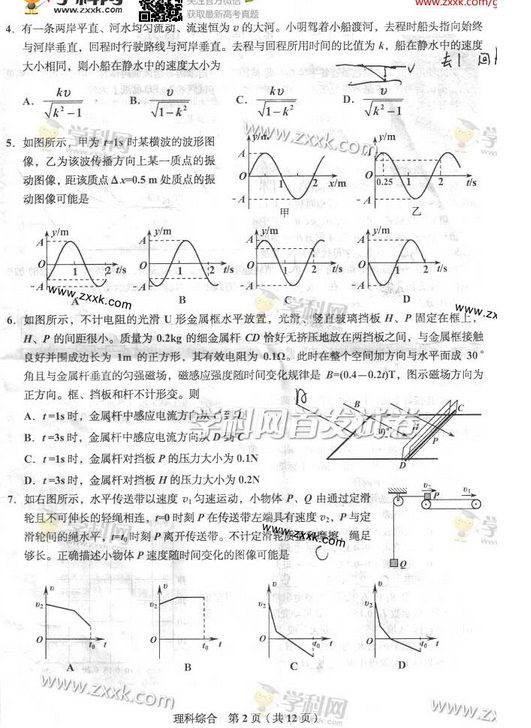 关注官方微信
获取最新高考真题
www.zxxk.com/g
4．有一条两岸平直、河水均匀流动、流速恒为 v 的大河。小明驾着小船渡河，去程时船头指向始终
与河岸垂直，回程时行驶路线与河岸垂直。去程与回程所用时间的比值为 k，船在静水中的速度
大小相同，则小船在静水中的速度大小为
v 去1 回
A．kv/√(k²−1) B．v/√(1−k²) C．kv/√(1−k²) D．v/√(k²−1)
学科网
www.zxxk.com
5．如图所示，甲为 t=1s 时某横波的波形图
像，乙为该波传播方向上某一质点的振
动图像，距该质点 Δx=0.5 m 处质点的振
动图像可能是
y/m A O -A 1 2 x/m 甲
y/m A O -A 0.25 1 2 t/s 乙
y/m A O -A 1 2 t/s A
y/m A O -A 1 2 t/s B
y/m A O -A 1 2 t/s C
y/m A O -A 1 2 t/s D
www.zxxk.com
学科网
www.zxxk.com
6．如图所示，不计电阻的光滑 U 形金属框水平放置，光滑、竖直玻璃挡板 H、P 固定在框上，
H、P 的间距很小。质量为 0.2kg 的细金属杆 CD 恰好无挤压地放在两挡板之间，与金属框接触
良好并围成边长为 1m 的正方形，其有效电阻为 0.1Ω。此时在整个空间加方向与水平面成 30°
角且与金属杆垂直的匀强磁场，磁感应强度随时间变化规律是 B=(0.4−0.2t)T，图示磁场方向为
正方向。框、挡板和杆不计形变。则
A．t=1s 时，金属杆中感应电流方向从 C 到 D
B．t=3s 时，金属杆中感应电流方向从 D 到 C
C．t=1s 时，金属杆对挡板 P 的压力大小为 0.1N
D．t=3s 时，金属杆对挡板 H 的压力大小为 0.2N
学科网首发试卷
B B H P C D
7．如右图所示，水平传送带以速度 v₁匀速运动，小物体 P、Q 由通过定滑
轮且不可伸长的轻绳相连，t=0 时刻 P 在传送带左端具有速度 v₂，P 与定
滑轮间的绳水平，t=t₀时刻 P 离开传送带。不计定滑轮质量和摩擦，绳足
够长。正确描述小物体 P 速度随时间变化的图像可能是
C
P v₂ v₁ Q
www.zxxk.com
v v₂ O t₀ t A
v v₂ O t₀ t B
v v₂ O t₀ t C
v v₂ O t₀ t D
www.zxxk.com
学科网
理科综合 第 2 页（共 12 页）